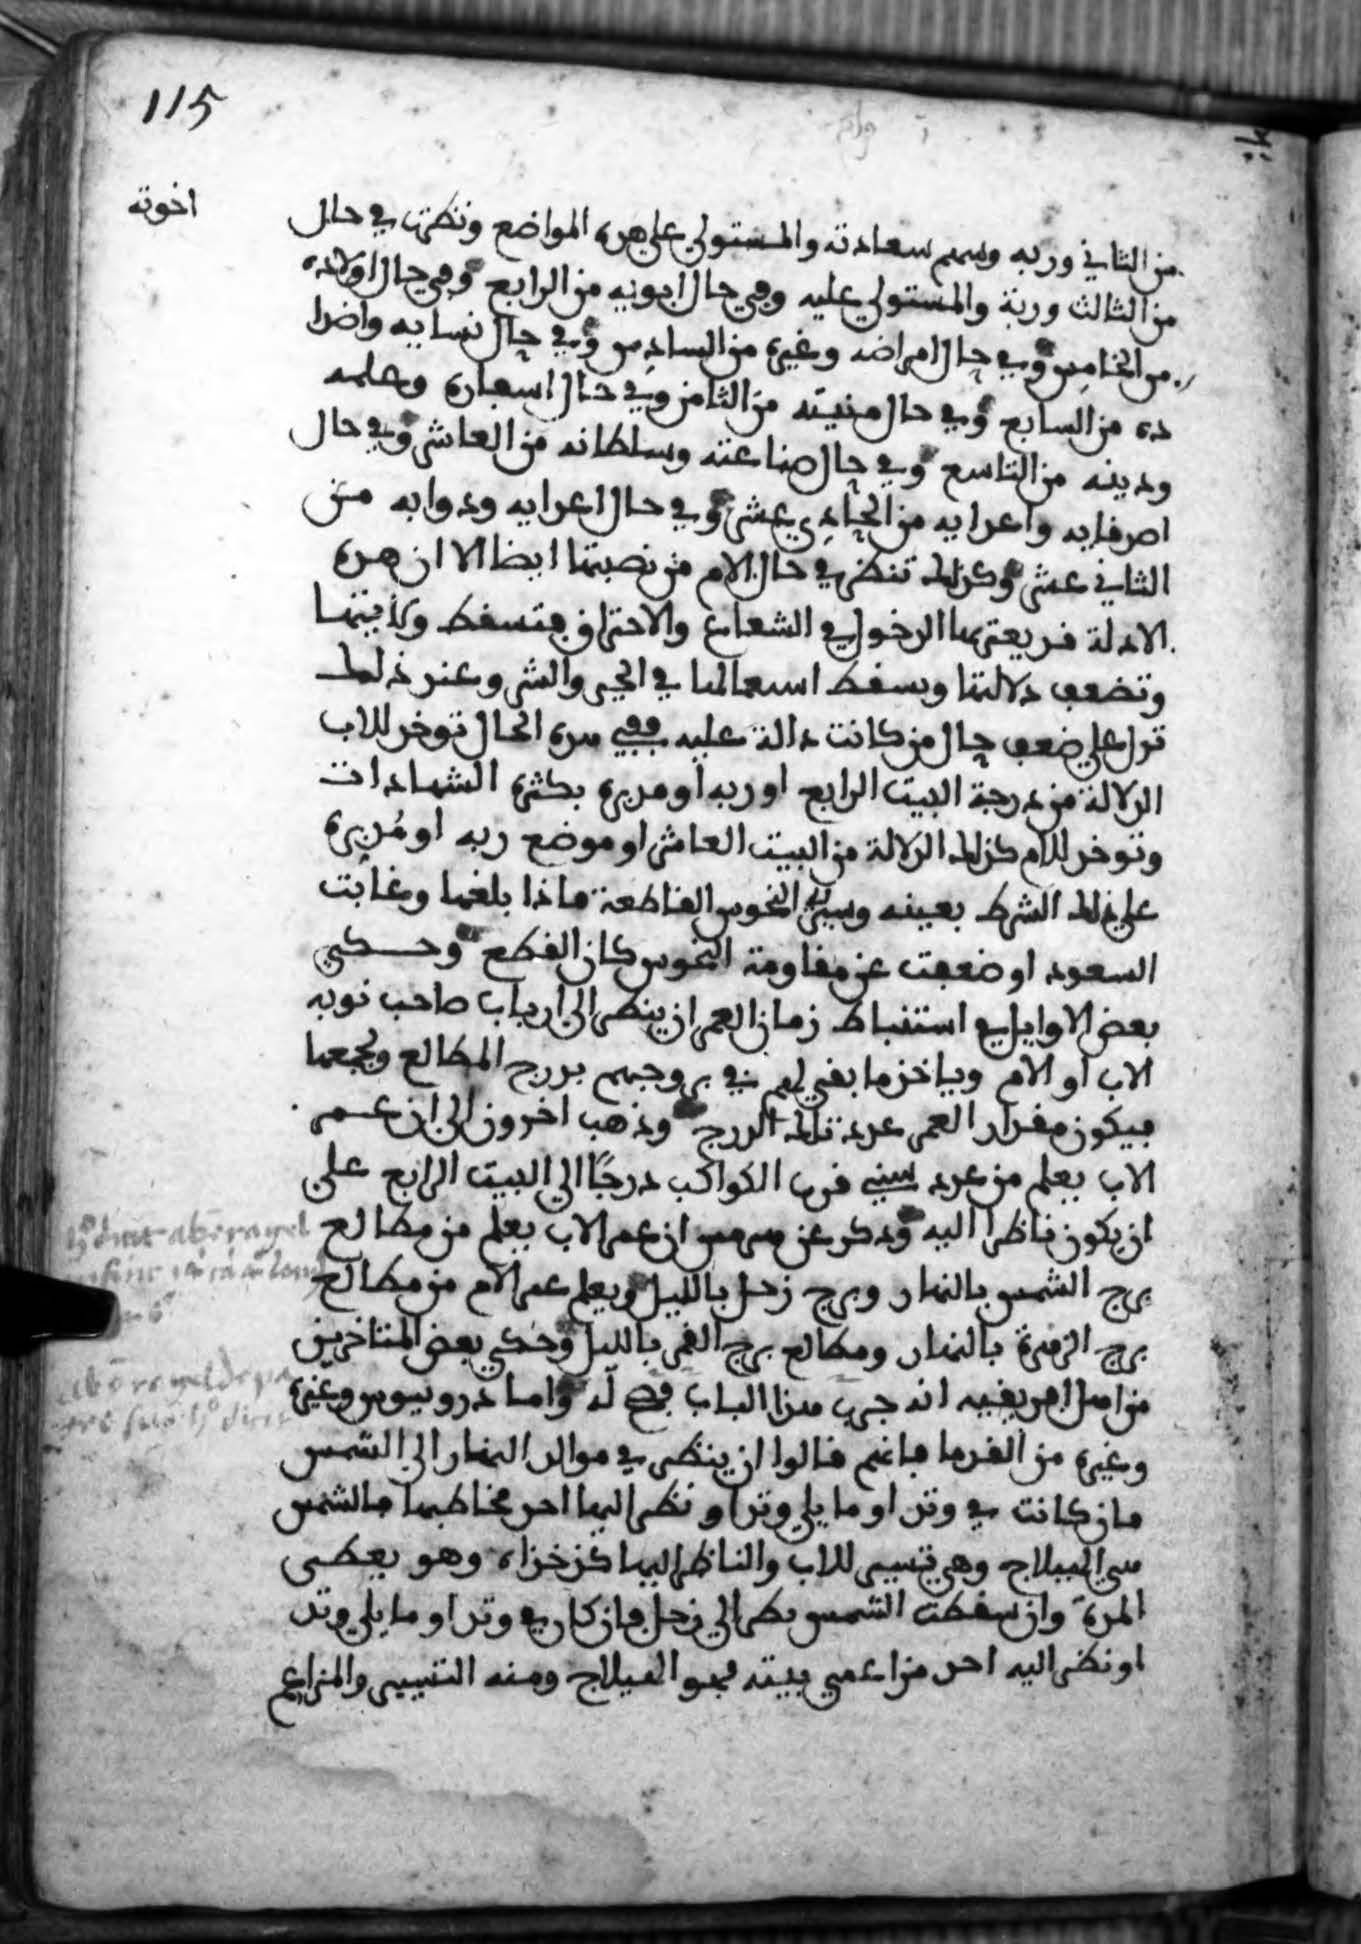 115
من الثاني وربه وسهم سعادته والمستولي على هذه المواضع وتنظر في حال اخوته
من الثالث وربه والمستولي عليه وفي حال ابويه من الرابع وفي حال اولاده
من الخامس وفي حال امراضه وغيره من السادس وفي حال نسايه واضدا
ده من السابع وفي حال منيته من الثامن وفي حال اسفاره وعلمه
ودينه من التاسع وفي حال صناعته وسلطانه من العاشر وفي حال
اصدقايه واعدايه من الحادي عشر وفي حال اعدايه ودوابه من
الثاني عشر وكذلك تنظر في حال الام من نصبتها ايضا الا ان هذه
الادلة قد يعتريها الدخول في الشعاع والاحتراق فتسقط ولايتها
وتضعف دلالتها ويسقط استعمالها في الخير والشر وعند ذلك
تدل على ضعف حال من كانت دالة عليه ففي هذه الحال توخذ للاب
الدلالة من درجة البيت الرابع او ربه او مدبره بكثرة الشهادات
وتوخذ للام كذلك الدلالة من البيت العاشر او موضع ربه او مُدبره
على ذلك الشرط بعينه وسيّر الى النحوس القاطعة فاذا بلغها وغابت
السعود او ضعفت عن مقاومة النحوس كان القطع وحكى
بعض الاوايل في استنباط زمان العمر ان ينظر الى ارباب صاحب نوبه
الاب او الام وياخذ ما بقي لهم في بروجهم بدرج المطالع ويجمعها
فيكون مقدار العمر عدة تلك الدرج وذهب اخرون الى ان عمر
الاب يعلم من عدد سني قرب الكواكب درجًا الى البيت الرابع على
ان يكون ناظرا اليه وذكر عن هرمس ان عمر الاب يعلم من مطالع
برج الشمس بالنهار وبرج زحل بالليل ويعلم عمر الام من مطالع
برج الزهرة بالنهار ومطالع برج القمر بالليل وحكى بعض المتاخرين
من اهل افريقيه انه جرب هذا الباب فصح له واما دروثيوس وغيره
وغيره من القدما فانهم قالوا ان ينظر في موالد النهار الى الشمس
فان كانت في وتد او ما يلي وتدا و نظر اليها احد مخاطيها فالشمس
هي الهيلاج وهي تسير للاب والناظر اليها كذخذاه وهو يعطي
المدة وان سقطت الشمس نظر الى زحل فان كان في وتد او ما يلي وتد
او نظر اليه احد مزاعمي بيته فهو الهيلاج ومنه التسيير والمزاعم